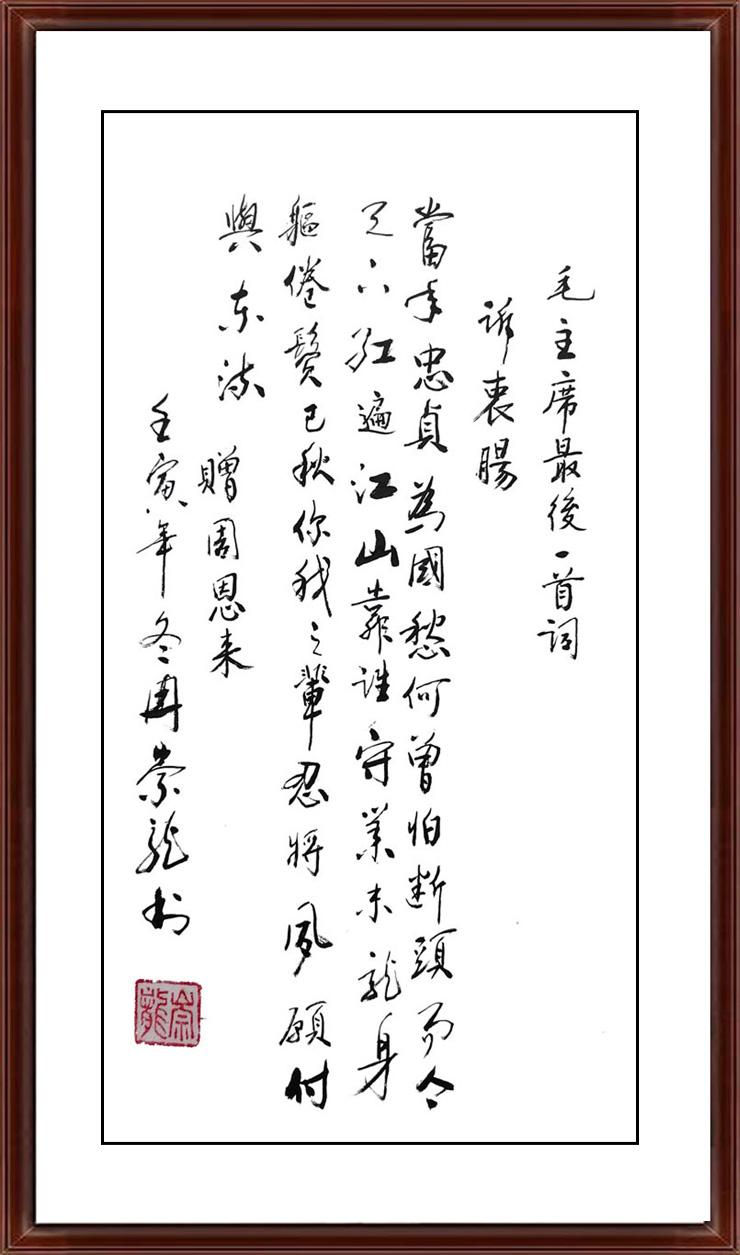 毛主席最後一首词
诉衷腸
當年忠貞為國愁何曾怕断頭而今
天下红遍江山靠谁守業未就身
軀倦鬓已秋你我之輩忍將夙願付
與东流
贈周恩来
壬寅年冬崇龍书
崇龍